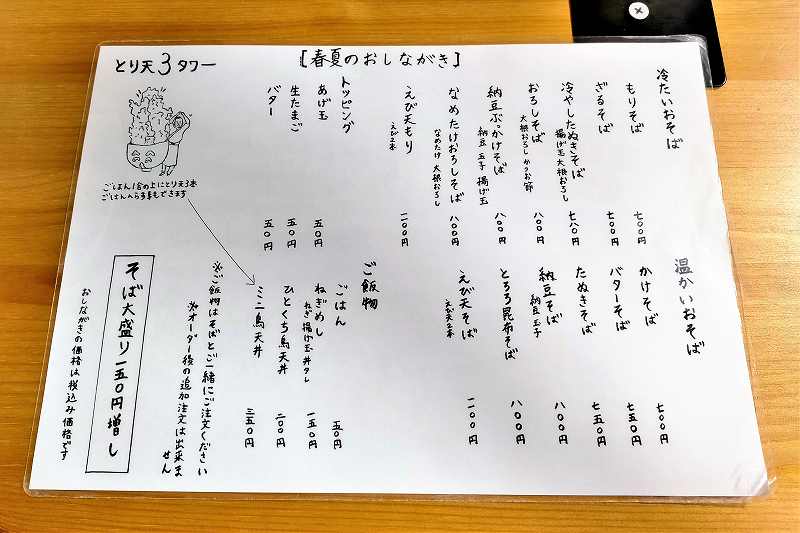 ［春夏のおしながき］
冷たいおそば
もりそば 七〇〇円
ざるそば 七五〇円
冷やしたぬきそば 七八〇円
揚げ玉 大根おろし
おろしそば 八〇〇円
大根おろし かつお節
納豆ぶっかけそば 八〇〇円
納豆 玉子 揚げ玉
なめたけおろしそば 八〇〇円
なめたけ 大根おろし
えび天もり 一一〇〇円
えび2本
トッピング
あげ玉 五〇円
生たまご 五〇円
バター 五〇円
とり天3タワー
ごはん1合の上にとり天3本
温かいおそば
かけそば 七〇〇円
バターそば 七五〇円
たぬきそば 七五〇円
納豆そば 八〇〇円
納豆 玉子
とろろ昆布そば 八〇〇円
えび天そば 一一〇〇円
えび天2本
ご飯物
ごはん 一五〇円
ねぎめし 一五〇円
ねぎ 揚げ玉 丼タレ
ひとくち鳥天丼 二〇〇円
ミニ鳥天丼 三五〇円
※ご飯物はそばとご一緒にご注文ください
※オーダー後の追加注文は出来ません
そば大盛り一五〇円増し
おしながきの価格は税込み価格です